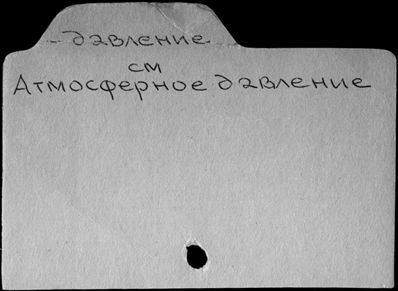 - давление
см
Атмосферное давление